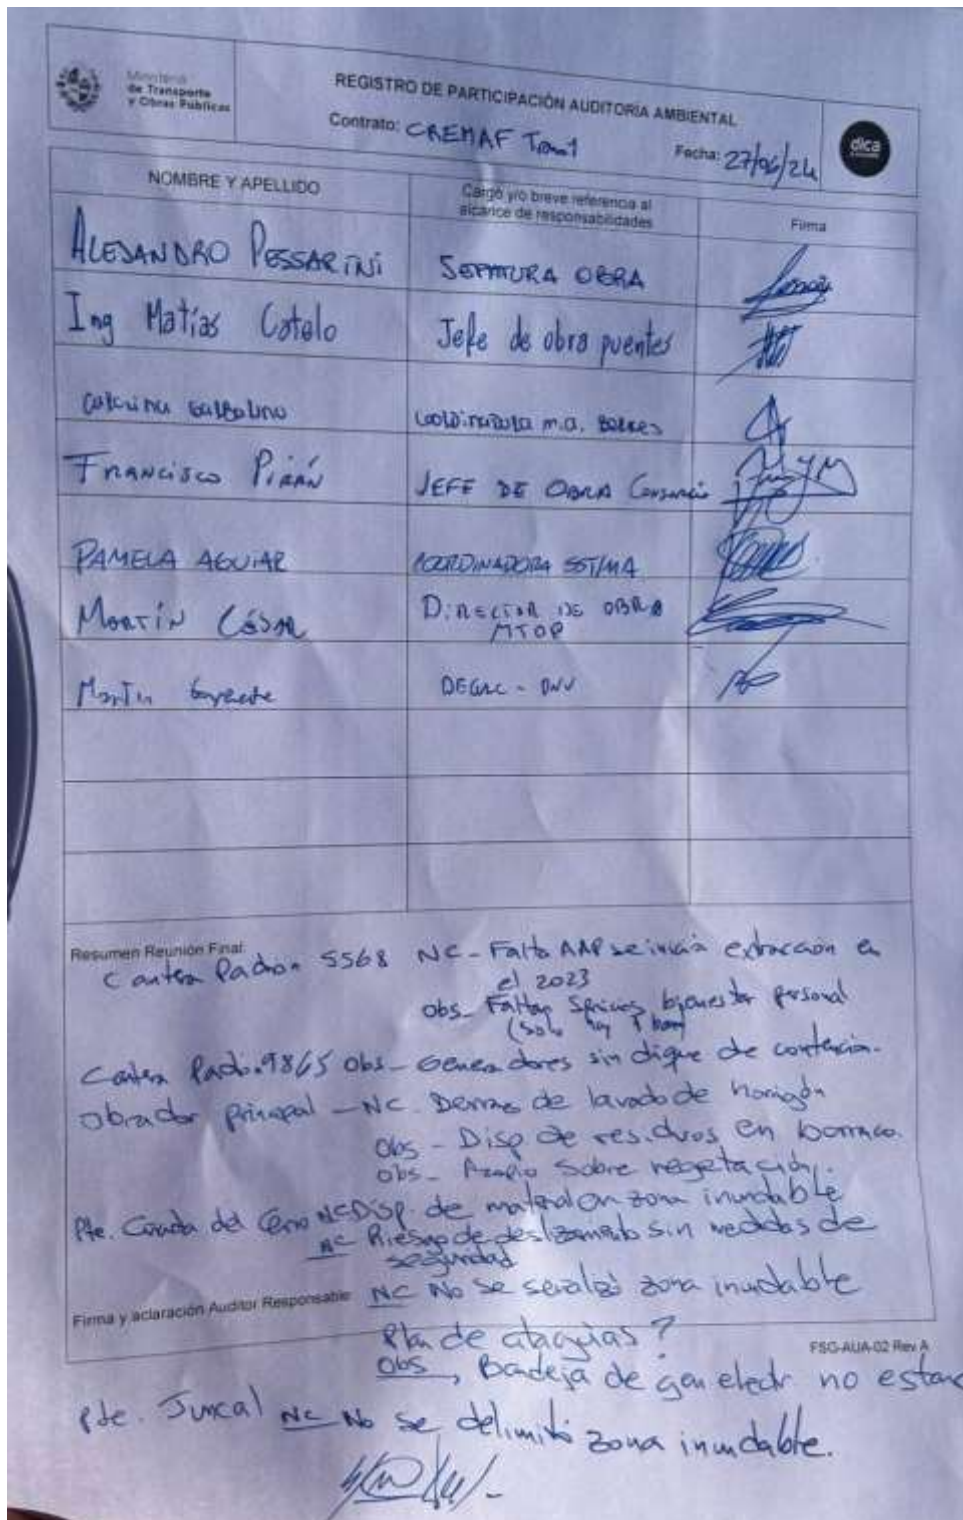 Ministerio
de Transporte
y Obras Públicas
REGISTRO DE PARTICIPACIÓN AUDITORÍA AMBIENTAL
Contrato: CREMAF Tramo 1
Fecha: 27/06/24
dica
NOMBRE Y APELLIDO
Cargo y/o breve referencia al
alcance de responsabilidades
Firma
ALEJANDRO PESSARINI JEFATURA OBRA
Ing Matías Cotelo Jefe de obra puentes
m.a.
FRANCISCO PIRÁN JEFE DE OBRA Consorcio
PAMELA AGUIAR COORDINADORA SSTMA
MARTÍN CÉSAR DIRECTOR DE OBRA
MTOP
Martín DEGAC - DNV
Resumen Reunión Final:
Cantera Padrón 5568 NC - Falta AAP se inició extracción en
el 2023
Obs - Faltan bienestar personal
(solo hay 1
Cantera Padrón 9865 Obs - Generadores sin dique de contención.
Obrador principal - NC. Derrame de lavado de hormigón
Obs - Disp de residuos en
Obs - Acopio sobre vegetación.
Pte. Cañada del Cerro NC Disp. de material en zona inundable
NC Riesgo de deslizamiento sin medidas de
seguridad
NC No se señalizó zona inundable
Firma y aclaración Auditor Responsable
Plan de ataguías?
FSG-AUA-02 Rev A
Obs, Bandeja de gen electr no
Pte. Juncal NC No se delimitó zona inundable.